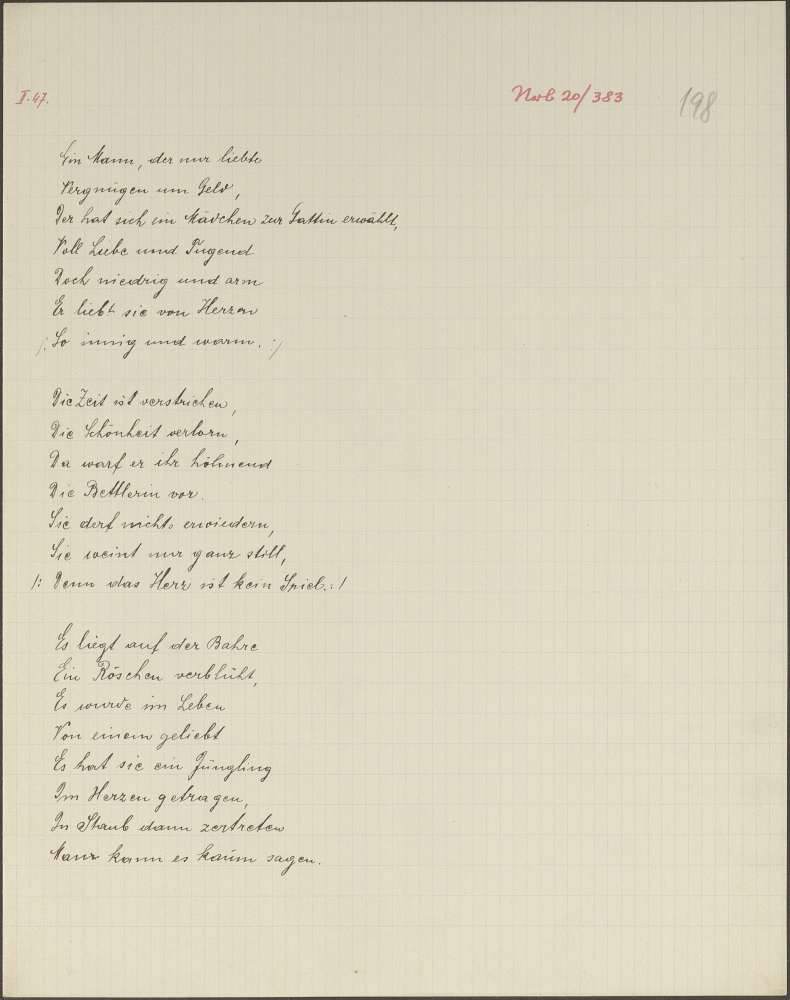 II.47.
Norb 20/383
198
Ein Mann, der nur liebte
Vergnügen um Geld,
Der hat sich ein Mädchen zur Gattin erwählt,
Voll Liebe und Tugend
Doch niedrig und arm
Er liebt sie von Herzen
/: So innig und warm. :/
Die Zeit ist verstrichen,
Die Schönheit verlorn,
Da warf er ihr höhnend
Die Bettlerin vor.
Sie derf nichts erwiedern,
Sie weint nur ganz still,
/: Denn das Herz ist kein Spiel. :/
Es liegt auf der Bahre
Ein Röschen verblüht,
Es wurde im Leben
Von einem geliebt
Es hat sie ein Jüngling
Im Herzen getragen,
In Staub dann zertreten
Manz kann es kaum sagen.